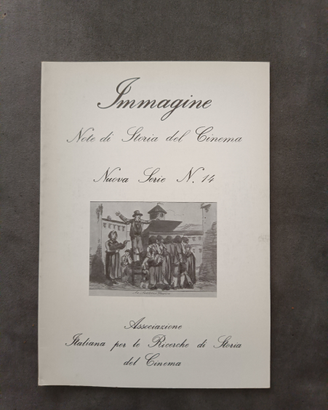 Immagine
Note di Storia del Cinema
Nuova Serie N. 14
Associazione
Italiana per le Ricerche di Storia
del Cinema